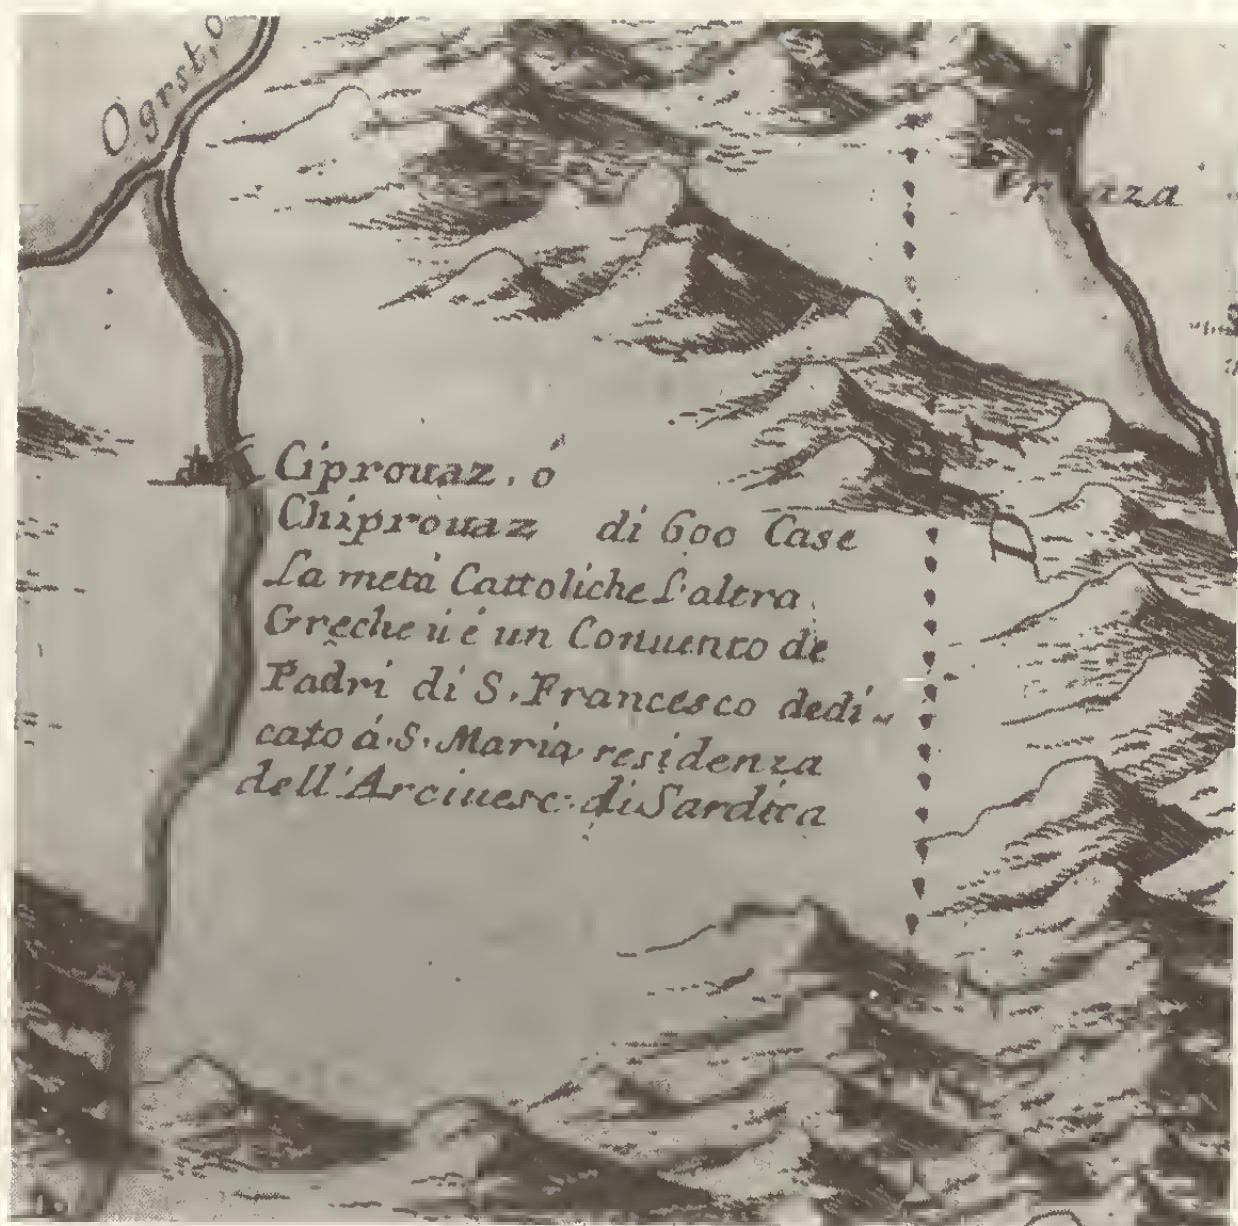 Ogrst,o
Ciprouaz, ó
Chiprouaz di 600 Case
La metà Cattoliche L'altra
Greche u'é un Conuento de
Padri di S. Francesco dedi-
cato á S. Maria residenza
dell'Arciuesc: di Sardica
D